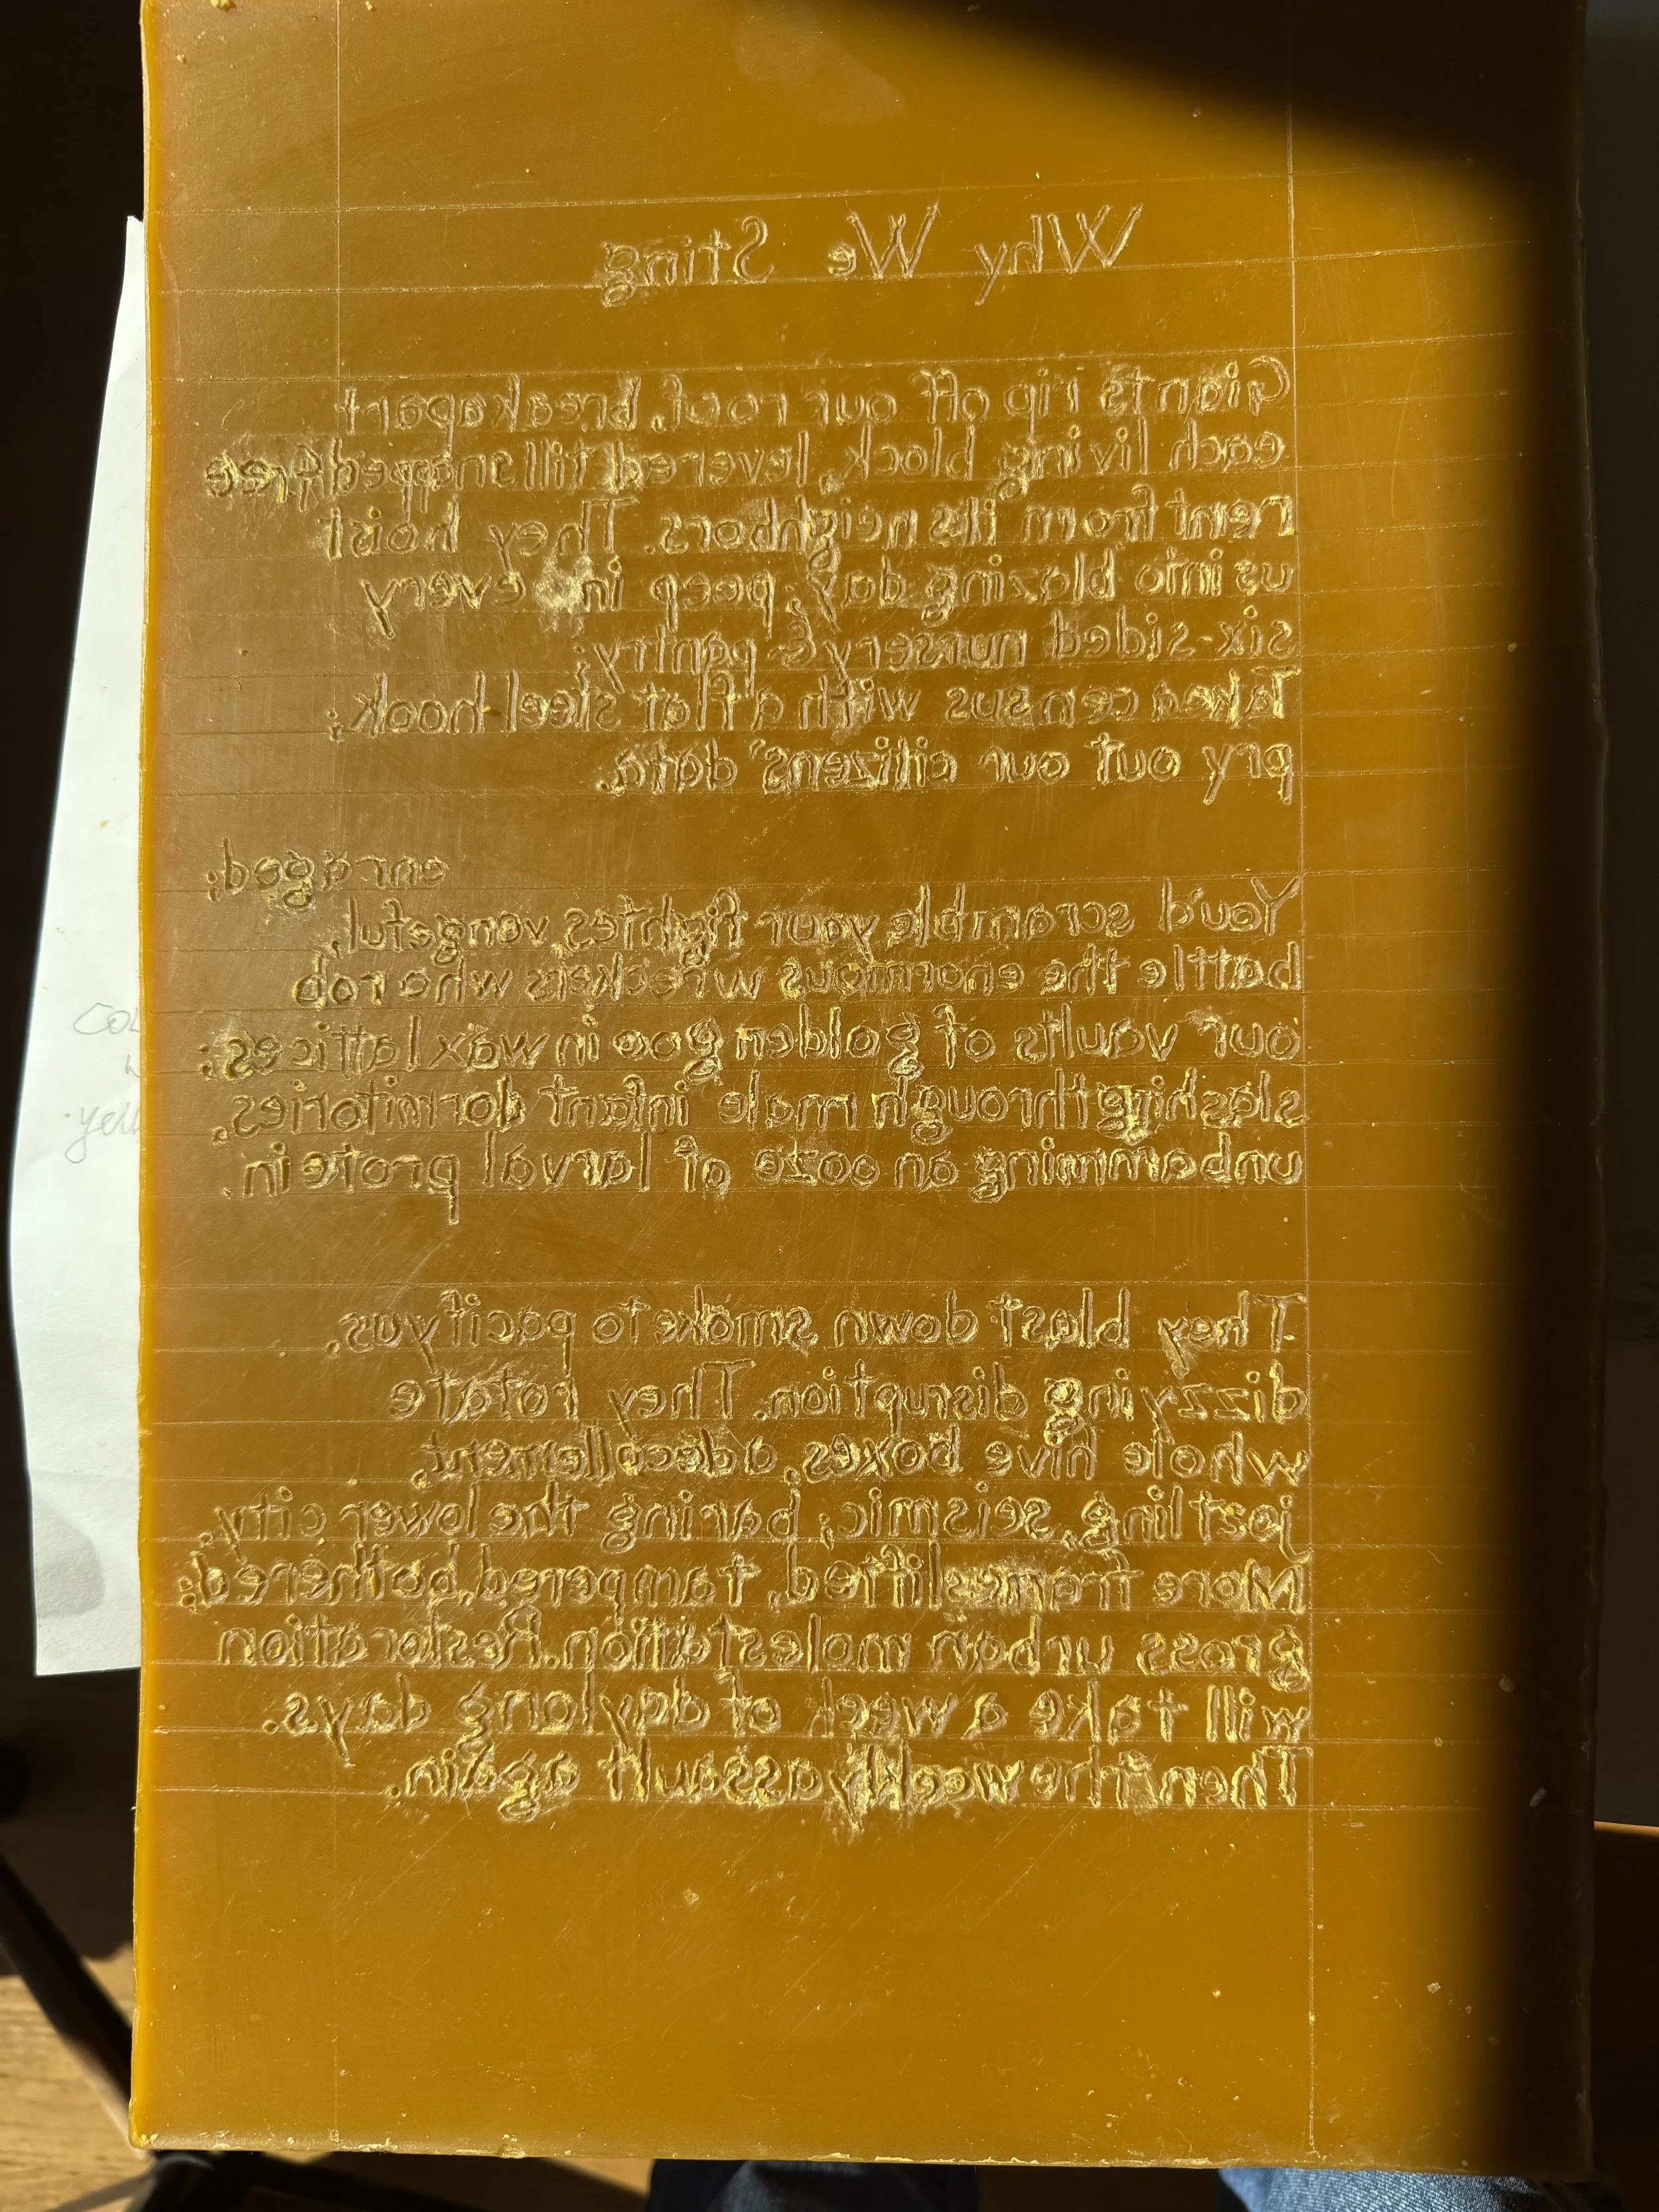 Why We Sting
Giants rip off our roof, break apart
each living block, levered till snapped free
rent from its neighbors. They hoist
us into blazing day; peep in every
six-sided nursery & pantry;
Take a census with a flat steel hook;
pry out our citizens' data.
enraged;
You'd scramble your fightes, vengeful,
battle the enormous wreckers who rob
our vaults of golden goo in wax lattices;
slashing through male infant dormitories,
unbamming an ooze of larval protein.
They blast down smoke to pacify us.
dizzying disruption. They rotate
whole hive boxes, a decollement,
jostling, seismic; baring the lower city.
More frames lifted, tampered, bothered;
gross urban molestation. Restoration
will take a week of daylong days.
Then the weekly assault again.
COL
yell